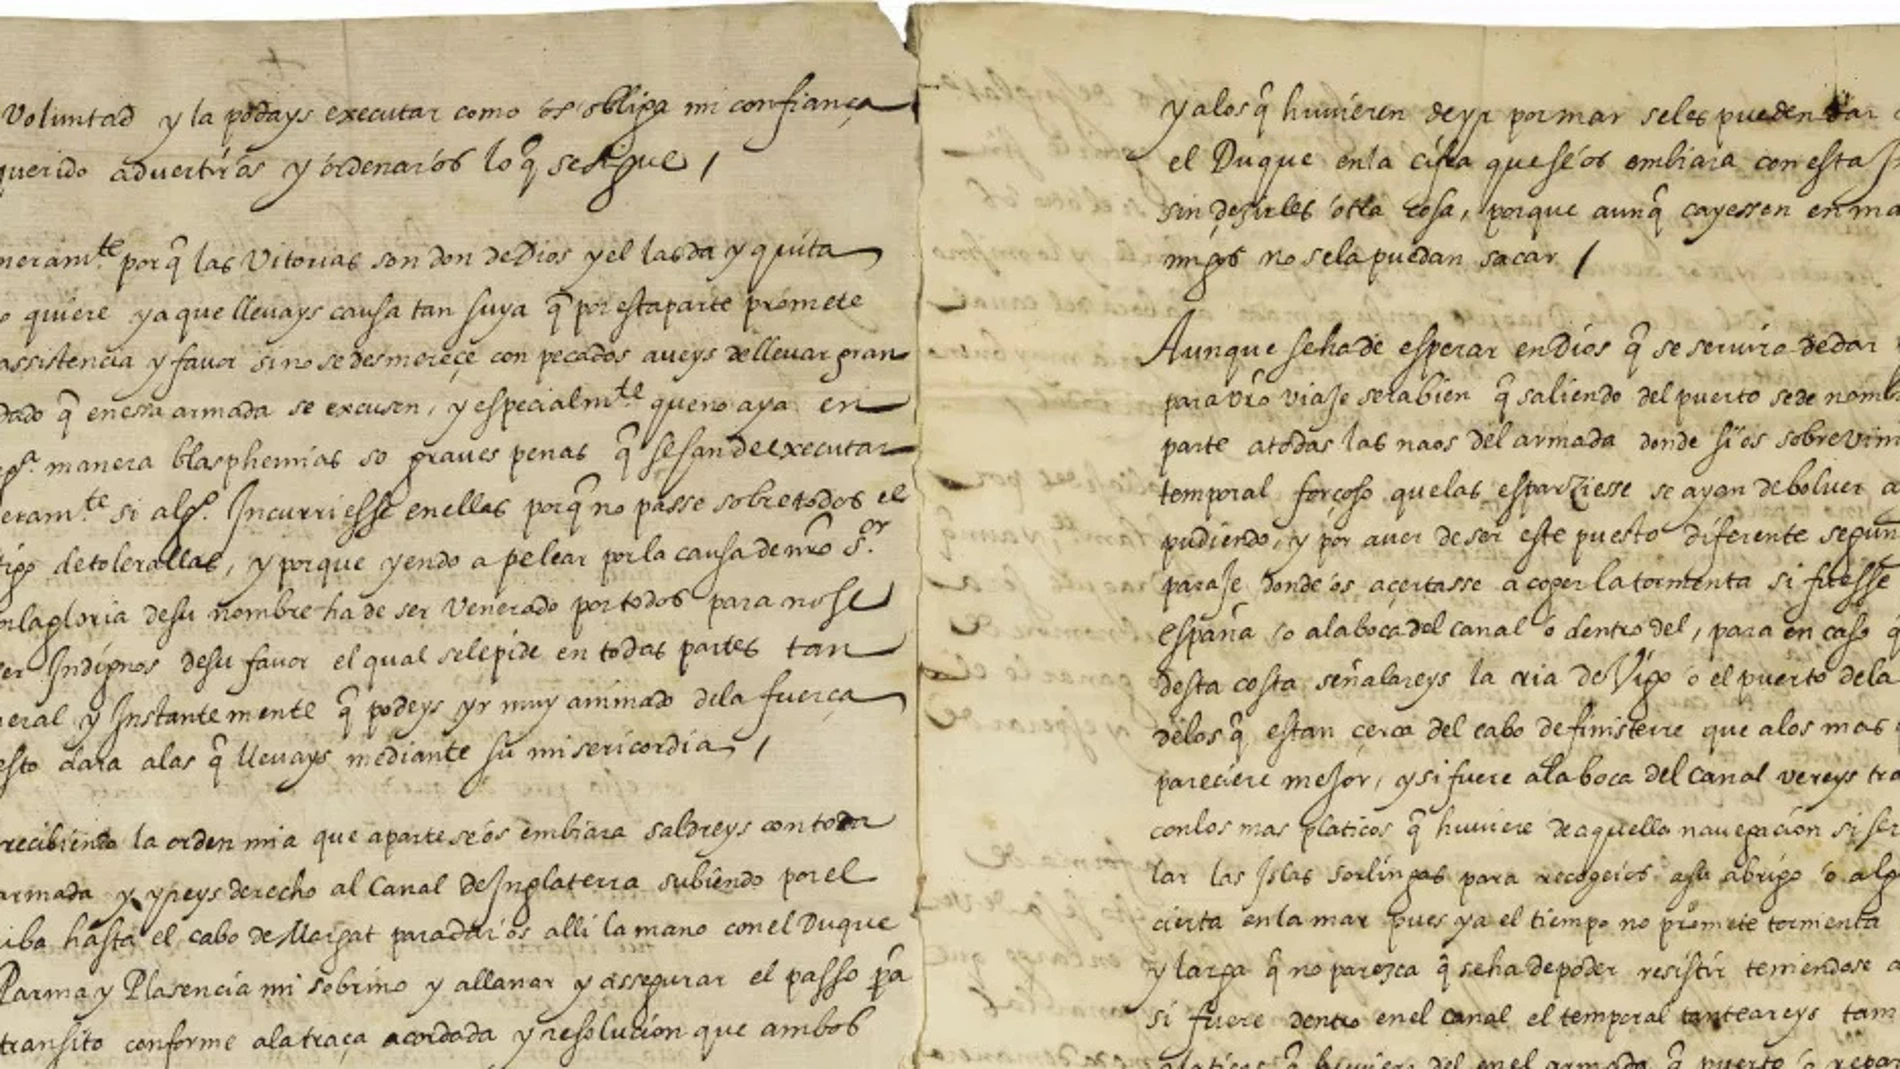 Voluntad y la podays executar como os obliga mi confiança
querido advertiros y ordenaros lo q̃ se sigue /
meram.te por q̃ las Vitorias son don de Dios y el las da y quita
o quiere ya que llevays causa tan suya q̃ por esta parte promete
assistencia y favor si no se desmereçe con pecados aveys de llevar gran
dado q̃ en essa armada se excusen, y especialm.te que no aya en
manera blasphemias so graves penas q̃ se han de executar
eram.te si alg.o Incurriesse en ellas porq̃ no passe sobre todos el
tigo de tolerallas, y porque yendo a pelear por la causa de nr̃o S.or
en la gloria de su nombre ha de ser Venerado por todos para no se
er Indignos de su favor el qual se le pide en todas partes tan
neral y Instantemente q̃ podeys yr muy animado de la fuerça
esto dara a las q̃ llevays mediante su misericordia /
recibiendo la orden mia que aparte se os embiara saldreys con toda
armada y yreys derecho al Canal de Inglaterra subiendo por el
iba hasta el cabo de Margat para daros alli la mano con el Duque
Parma y Plasencia mi sobrino y allanar y assegurar el passo p̃a
transito conforme a la traça acordada y resolucion que ambos
y a los q̃ huvieren de yr por mar se les pueden dar
el Duque en la cifra que se os embiara con esta
sin dezirles otra cosa, porque aunq̃ cayessen en ma
migos no se la puedan sacar /
Aunque se ha de esperar en Dios q̃ se servira de dar
para vr̃o viaje sera bien q̃ saliendo del puerto se de nomb
parte a todas las naos del armada donde si os sobrevini
temporal forçoso que las esparziesse se ayan de bolver a
pudiendo, y por aver de ser este puesto diferente segun
paraje donde os açertasse a coger la tormenta si fuesse
españa o a la boca del canal o dentro del, para en caso q
desta costa señalareys la ria de Vigo o el puerto de la
de los q̃ estan çerca del cabo de finisterre que a los mas
pareciere mejor, y si fuere a la boca del canal vereys tra
con los mas platicos q̃ huviere de aquella navegacion si ser
lar las Islas Sorlingas para recogeros a su abrigo o alg
cierta en la mar pues ya el tiempo no promete tormenta
y larga q̃ no parezca q̃ se ha de poder resistir teniendose a
si fuere dentro en el canal el temporal tanteareys tam
platicos q̃ huviere del en el armada q̃ puerto o repar